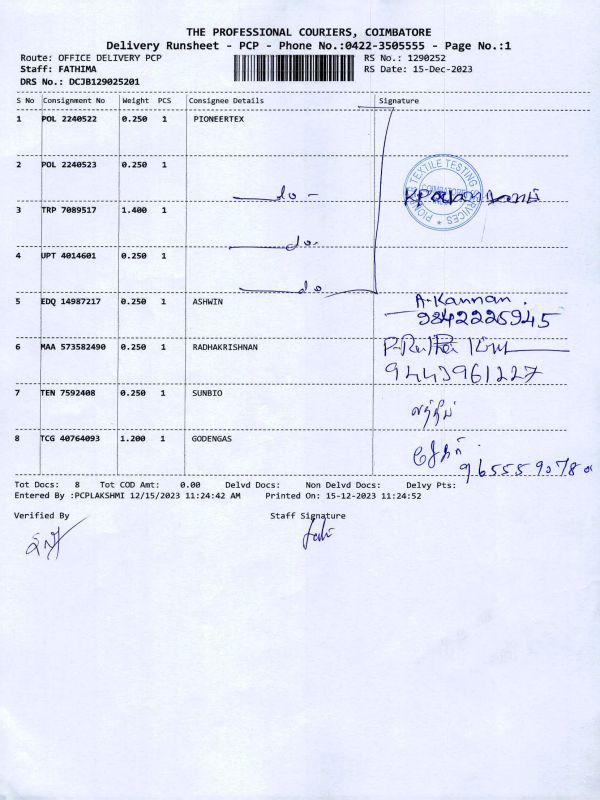 THE PROFESSIONAL COURIERS, COIMBATORE
Delivery Runsheet - PCP - Phone No.:0422-3505555 - Page No.:1
Route: OFFICE DELIVERY PCP RS No.: 1290252
Staff: FATHIMA RS Date: 15-Dec-2023
DRS No.: DCJB129025201
S No Consignment No Weight PCS Consignee Details Signature
1 POL 2240522 0.250 1 PIONEERTEX
2 POL 2240523 0.250 1
do -
3 TRP 7089517 1.400 1
do-
4 UPT 4014601 0.250 1
do
PIONEER TEXTILE TESTING SERVICES
COIMBATORE
5 EDQ 14987217 0.250 1 ASHWIN A-Kannan.
9842225945
6 MAA 573582490 0.250 1 RADHAKRISHNAN
9443961227
7 TEN 7592408 0.250 1 SUNBIO
8 TCG 40764093 1.200 1 GODENGAS
Tot Docs: 8 Tot COD Amt: 0.00 Delvd Docs: Non Delvd Docs: Delvy Pts:
Entered By :PCPLAKSHMI 12/15/2023 11:24:42 AM Printed On: 15-12-2023 11:24:52
Verified By Staff Signature